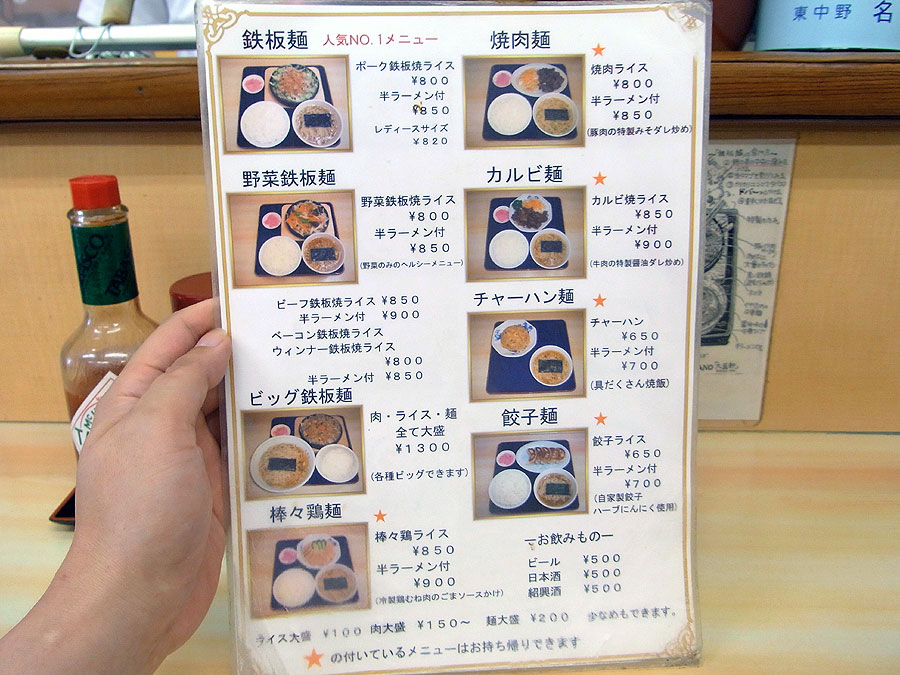 東中野 名
鉄板麺 人気NO.1メニュー
ポーク鉄板焼ライス
¥800
半ラーメン付
¥850
レディースサイズ
¥820
野菜鉄板麺
野菜鉄板焼ライス
¥800
半ラーメン付
¥850
(野菜のみのヘルシーメニュー)
ビーフ鉄板焼ライス ¥850
半ラーメン付 ¥900
ベーコン鉄板焼ライス
ウィンナー鉄板焼ライス
¥800
半ラーメン付 ¥850
ビッグ鉄板麺
肉・ライス・麺
全て大盛
¥1300
(各種ビッグできます)
棒々鶏麺 ★
棒々鶏ライス
¥850
半ラーメン付
¥900
(冷製鶏むね肉のごまソースかけ)
焼肉麺 ★
焼肉ライス
¥800
半ラーメン付
¥850
(豚肉の特製みそダレ炒め)
カルビ麺 ★
カルビ焼ライス
¥850
半ラーメン付
¥900
(牛肉の特製醤油ダレ炒め)
チャーハン麺 ★
チャーハン
¥650
半ラーメン付
¥700
(具だくさん焼飯)
餃子麺 ★
餃子ライス
¥650
半ラーメン付
¥700
(自家製餃子
ハーブにんにく使用)
ーお飲みものー
ビール ¥500
日本酒 ¥500
紹興酒 ¥500
ライス大盛 ¥100 肉大盛 ¥150〜 麺大盛 ¥200 少なめもできます。
★の付いているメニューはお持ち帰りできます